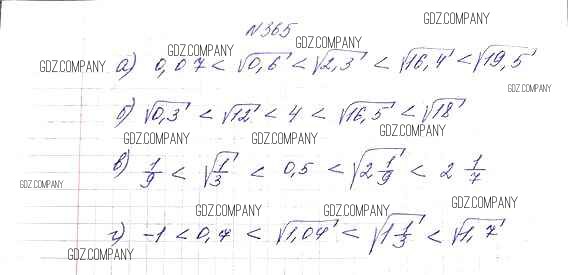 N365
GDZ.COMPANY
GDZ.COMPANY GDZ.COMPANY
GDZ.COMPANY а) 0,07 < √0,6 < √2,3 < √16,4 < √19,5
GDZ.COMPANY
б) √0,3 < √12 < 4 < √16,5 < √18
GDZ.COMPANY GDZ.COMPANY GDZ.COMPANY
в) 1/9 < √1/3 < 0,5 < √2 1/9 < 2 1/7
GDZ.COMPANY
GDZ.COMPANY GDZ.COMPANY GDZ.COMPANY
г) -1 < 0,7 < √1,04 < √1 1/3 < √1,7
GDZ.COMPANY